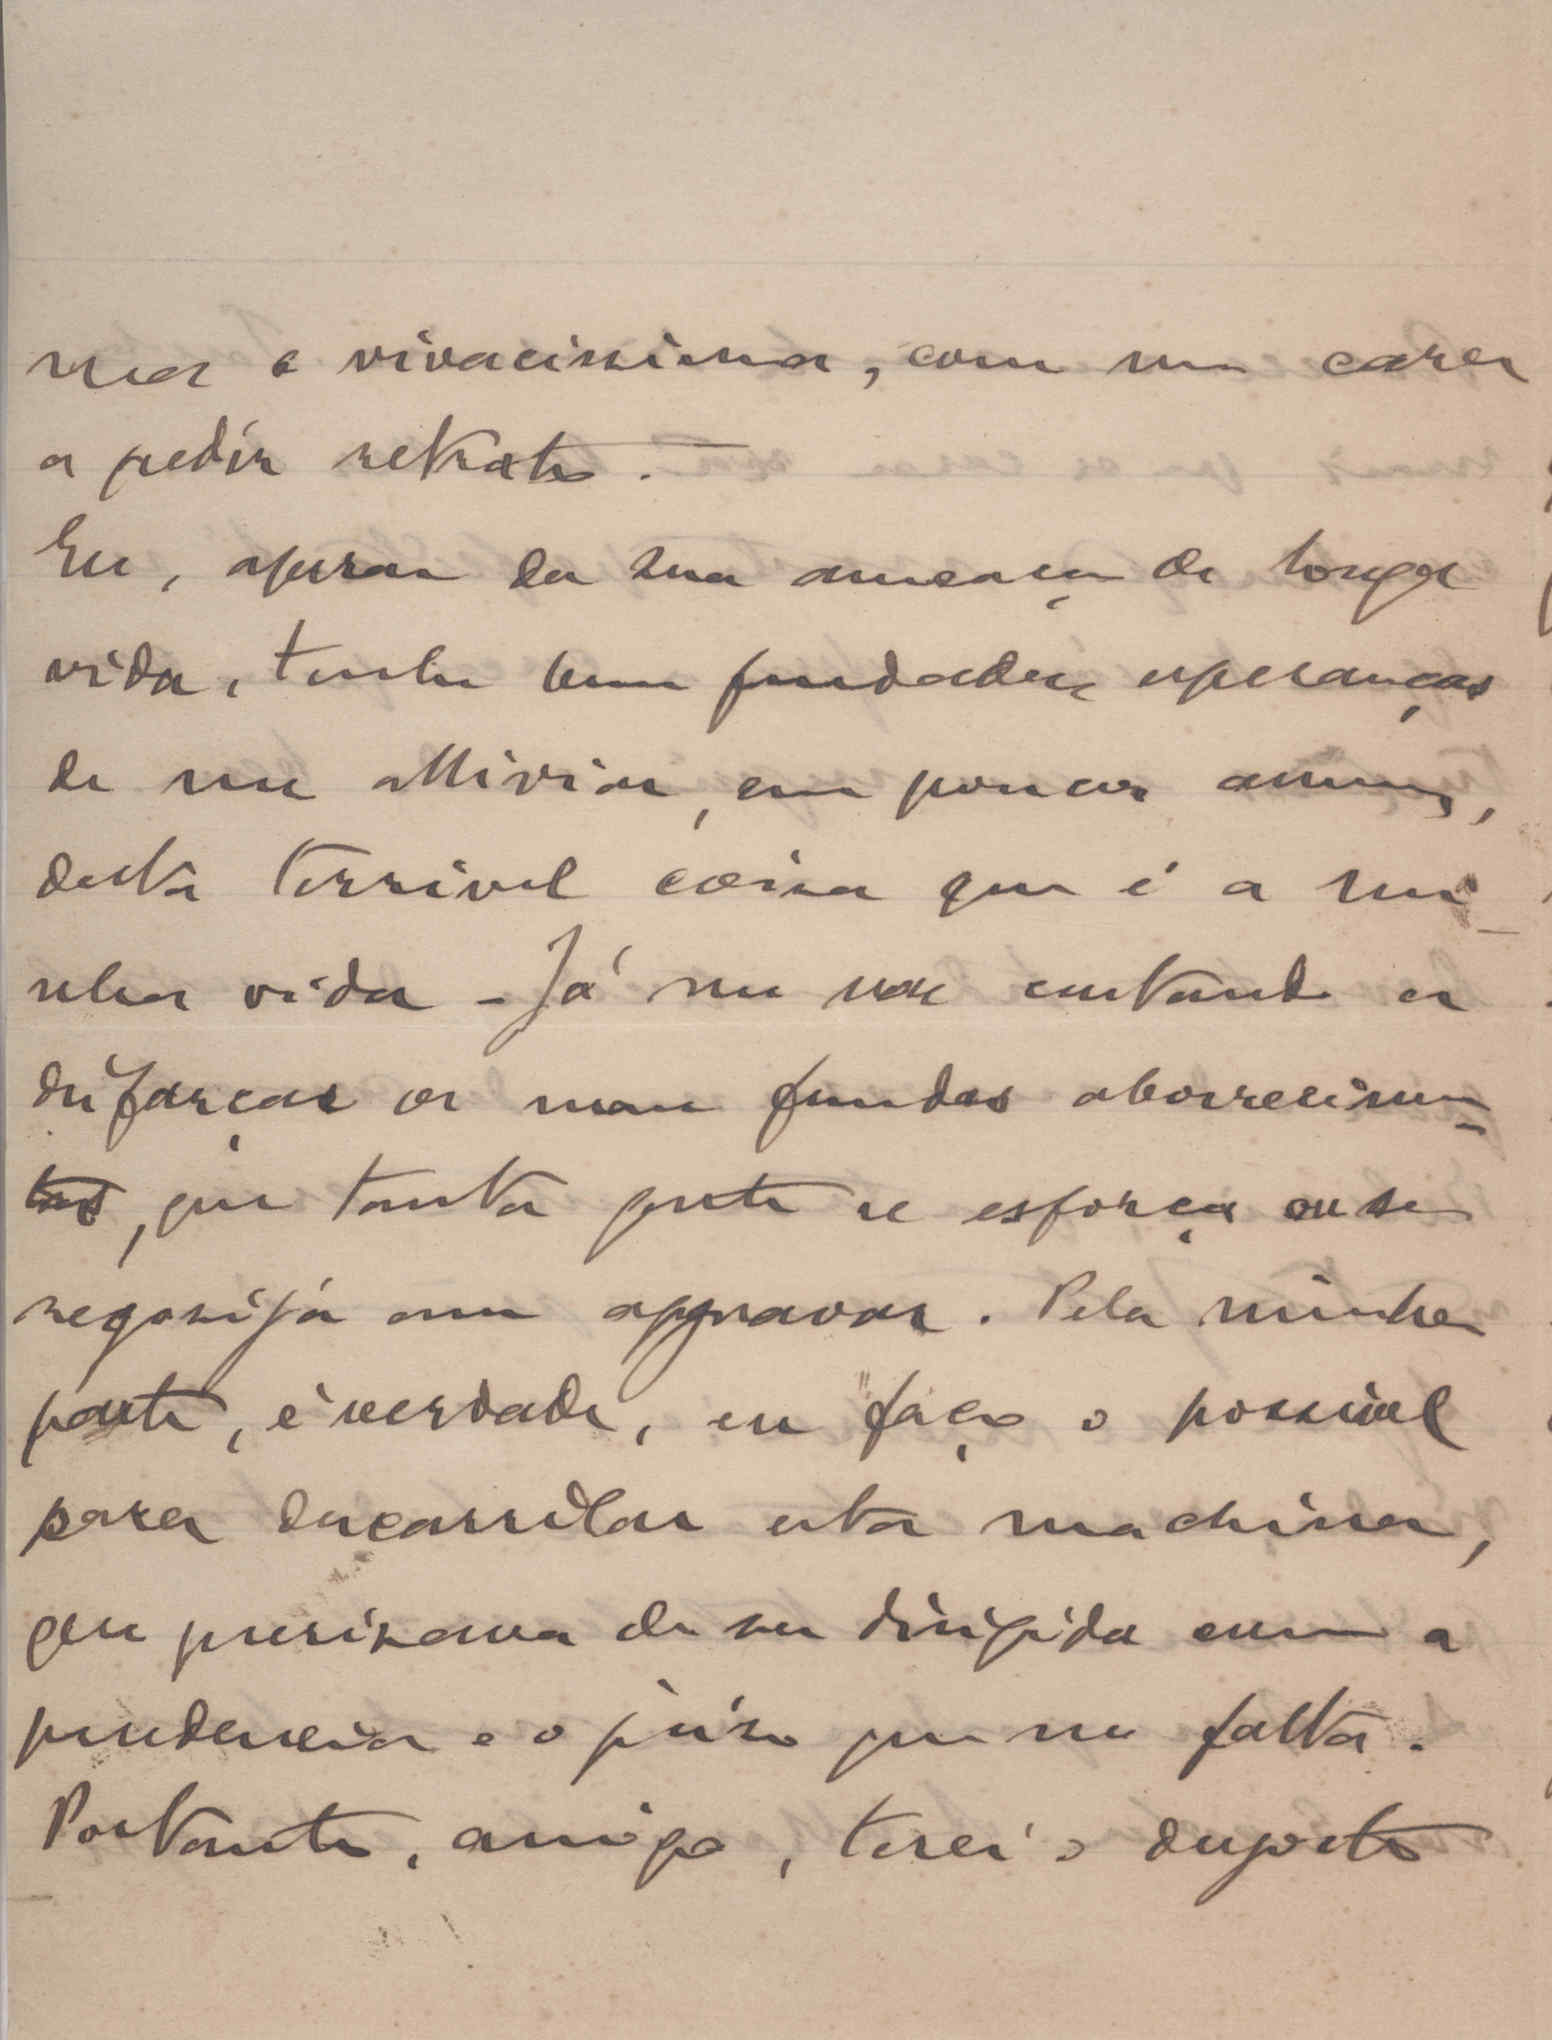 ma e vivacissima, com uma cara
a pedir retrato.
Eu, apesar da sua ameaça de longa
vida, tenho bem fundadas esperanças
de me alliviar, em poucos annos,
desta terrivel coisa que é a mi-
nha vida - Já me vae custando a
disfarçar os meus fundos aborrecimen-
tos, que tanta gente se esforça ou se
regosija em aggravar. Pela minha
parte, é verdade, eu faço o possivel
para descarrilar esta machina,
que precisava de ser dirigida com a
prudencia e o juiso que me falta.
Portanto, amigo, terei o desgosto